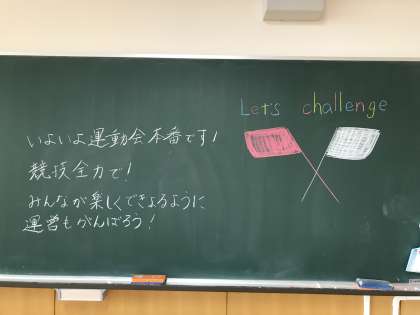 Let's challenge
いよいよ運動会本番です!
競技全力で!
みんなが楽しくできるように
運営もがんばろう!